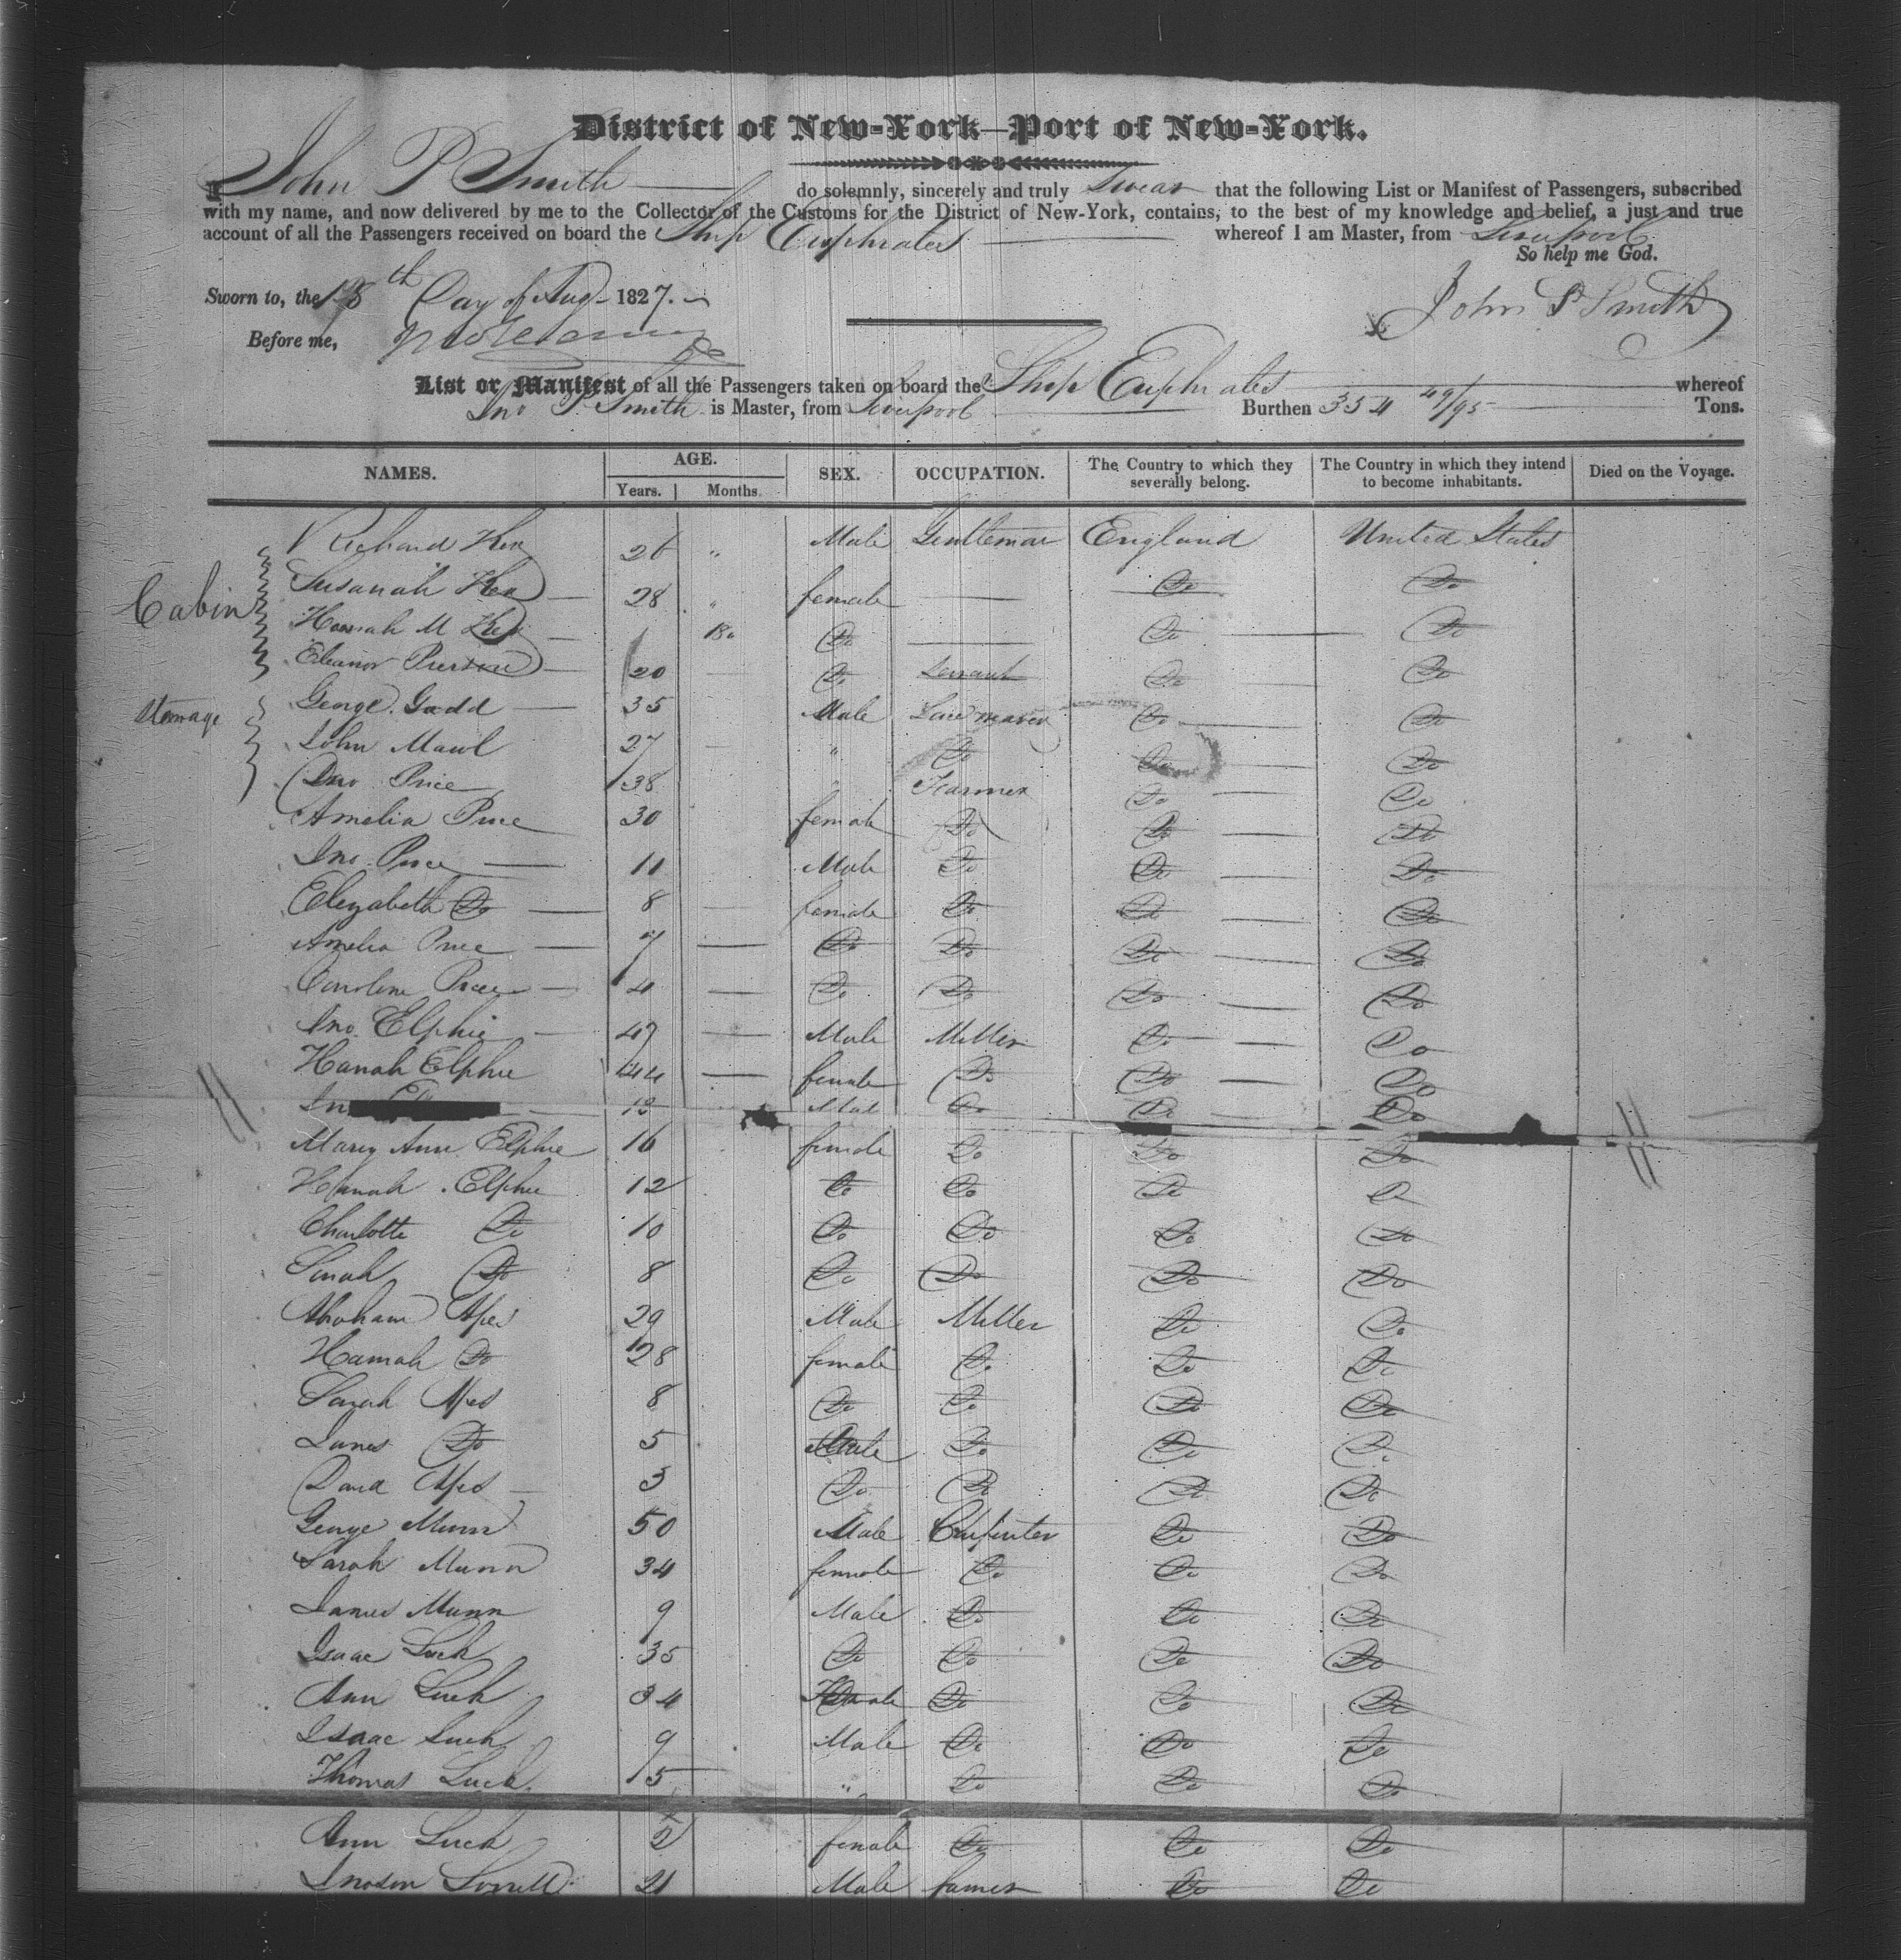 District of New-York—Port of New-York.
I John P Smith do solemnly, sincerely and truly Swear that the following List or Manifest of Passengers, subscribed
with my name, and now delivered by me to the Collector of the Customs for the District of New-York, contains, to the best of my knowledge and belief, a just and true
account of all the Passengers received on board the Ship Euphrates whereof I am Master, from Liverpool
So help me God.
Sworn to, the 18th Day of Aug 1827.
John P Smith
Before me,
List or Manifest of all the Passengers taken on board the Ship Euphrates whereof
Jno P Smith is Master, from Liverpool Burthen 354 49/95 Tons.
NAMES. AGE. SEX. OCCUPATION. The Country to which they severally belong. The Country in which they intend to become inhabitants. Died on the Voyage.
Years. Months.
Cabin
Richard 26 " Male Gentleman England United States
Susanah 28 " female Do Do
Hannah M 18 Do Do Do
Eleanor 20 Do Servant Do Do
Steerage
George Gadd 35 Male Do Do
John Mawl 27 " Do Do Do
Jno Price 38 " Farmer Do Do
Amelia Price 30 female Do Do Do
Jno Price 11 Male Do Do Do
Elezabeth Do 8 female Do Do Do
Amelia Price 7 Do Do Do Do
Caroline Price 4 Do Do Do Do
Jno Elphie 47 Male Miller Do Do
Hanah Elphie 44 female Do Do Do
Jno Male Do Do Do
Mary Ann Elphie 16 female Do Do Do
Hanah Elphie 12 Do Do Do Do
Charlotte Do 10 Do Do Do Do
Sarah Do 8 Do Do Do Do
Abraham Apes 29 Male Miller Do Do
Hannah Do 28 female Do Do Do
Sarah Apes 8 Do Do Do Do
James Do 5 Male Do Do Do
David Apes 3 Do Do Do Do
George Munn 50 Male Carpenter Do Do
Sarah Munn 34 female Do Do Do
James Munn 9 Male Do Do Do
Isaac Luck 35 Do Do Do Do
Ann Luck 34 Female Do Do Do
Isaac Luck 9 Male Do Do Do
Thomas Luck 5 " Do Do Do
Ann Luck 2 female Do Do Do
21 Male farmer Do Do